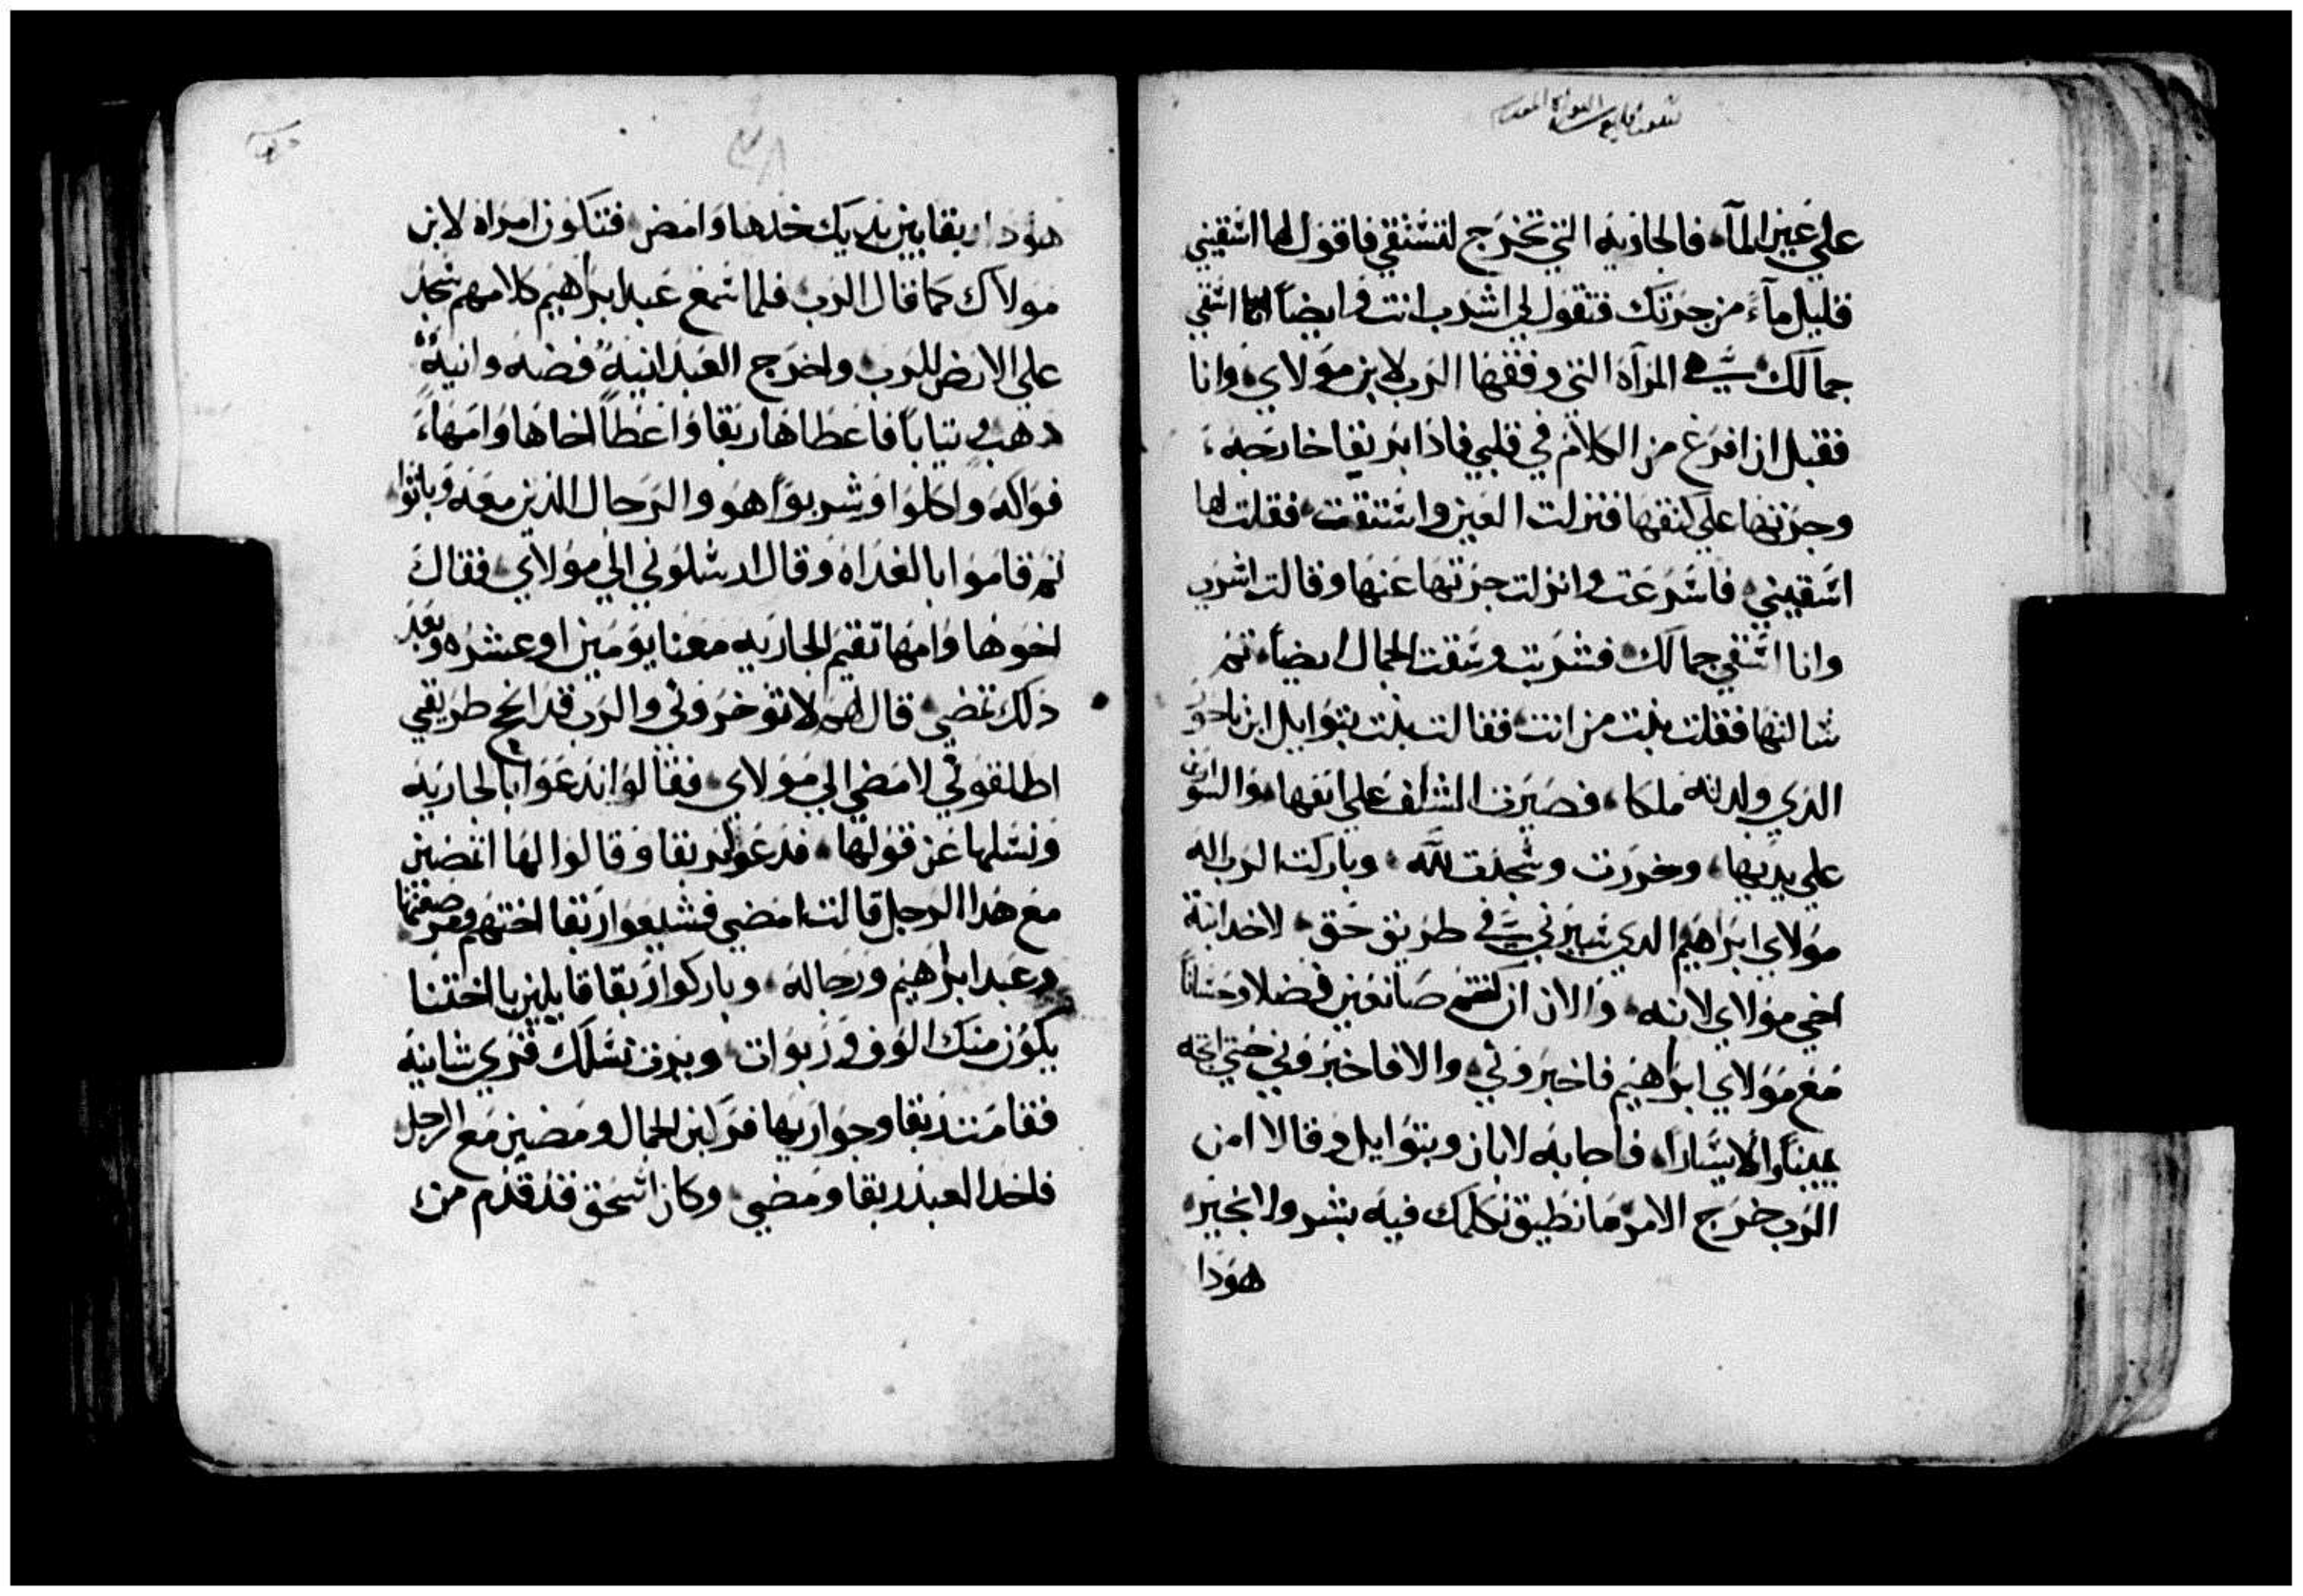 علي عين المآء فالجاريه التي تخرج لتستقي فاقول لها اسقيني
قليل مآء من جرتك فتقول لي اشرب انت وايضاً انا اسقي
جمالك هي المرآه التي وفقها الرب لابن مولاي وانا
فقبل ان افرغ من الكلام في قلبي فاذا بربقا خارجه
وجرتها علي كتفها فنزلت العين واستقت فقلت لها
اسقيني فاسرعت وانزلت جرتها عنها وقالت اشرب
وانا اسقي جمالك فشربت وسقت الجمال ايضاً ثم
سالتها فقلت بنت من انت فقالت بنت بتوايل ابن ناحور
الذي ولدته ملكا فصيرت الشنف علي انفها والسوارين
علي يديها وخررت وسجدت لله وباركت الرب اله
مولاي ابراهيم الدي سيرني في طريق حق لاخد ابنة
اخي مولاي لابنه والان ان كنتم صانعين فضلا وحسانا
مع مولاي ابراهيم فاخبروني والا فاخبروني حتي اتجه
يميناً والا يساراً فاجابه لابان وبتوايل وقالا من
الرب خرج الامر ما نطيق نكلمك فيه بشر ولا بخير
هودا
هودا ربقا بين يديك خدها وامض فتكون امراه لابن
مولاك كما قال الرب فلما سمع عبد ابراهيم كلامهم سجد
علي الارض للرب واخرج العبد انيةً فضه وانيةً
دهب وتياباً فاعطاها ربقا واعطا اخاها وامها
فواكه واكلوا وشربوا هو والرجال الذين معه وباتوا
ثم قاموا بالغداه وقال ارسلوني الي مولاي فقال
اخوها وامها تقيم الجاريه معنا يومين او عشره وبعد
ذلك تمضي قال لهم لا توخروني والرب قد انجح طريقي
اطلقوني لامضي الي مولاي فقالوا ندعوا بالجاريه
ونسلها عن قولها فدعوا ربقا وقالوا لها اتمضين
مع هدا الرجل قالت امضي فشيعوا ربقا اختهم ومرضعتها
وعبد ابراهيم ورجاله وباركوا ربقا قايلين يا اختنا
يكون منك الوف وربوات ويرت نسلك قري شانيه
فقامت ربقا وجواريها فركبن الجمال ومضين مع الرجل
فاخد العبد ربقا ومضي وكان اسحق قد قدم من